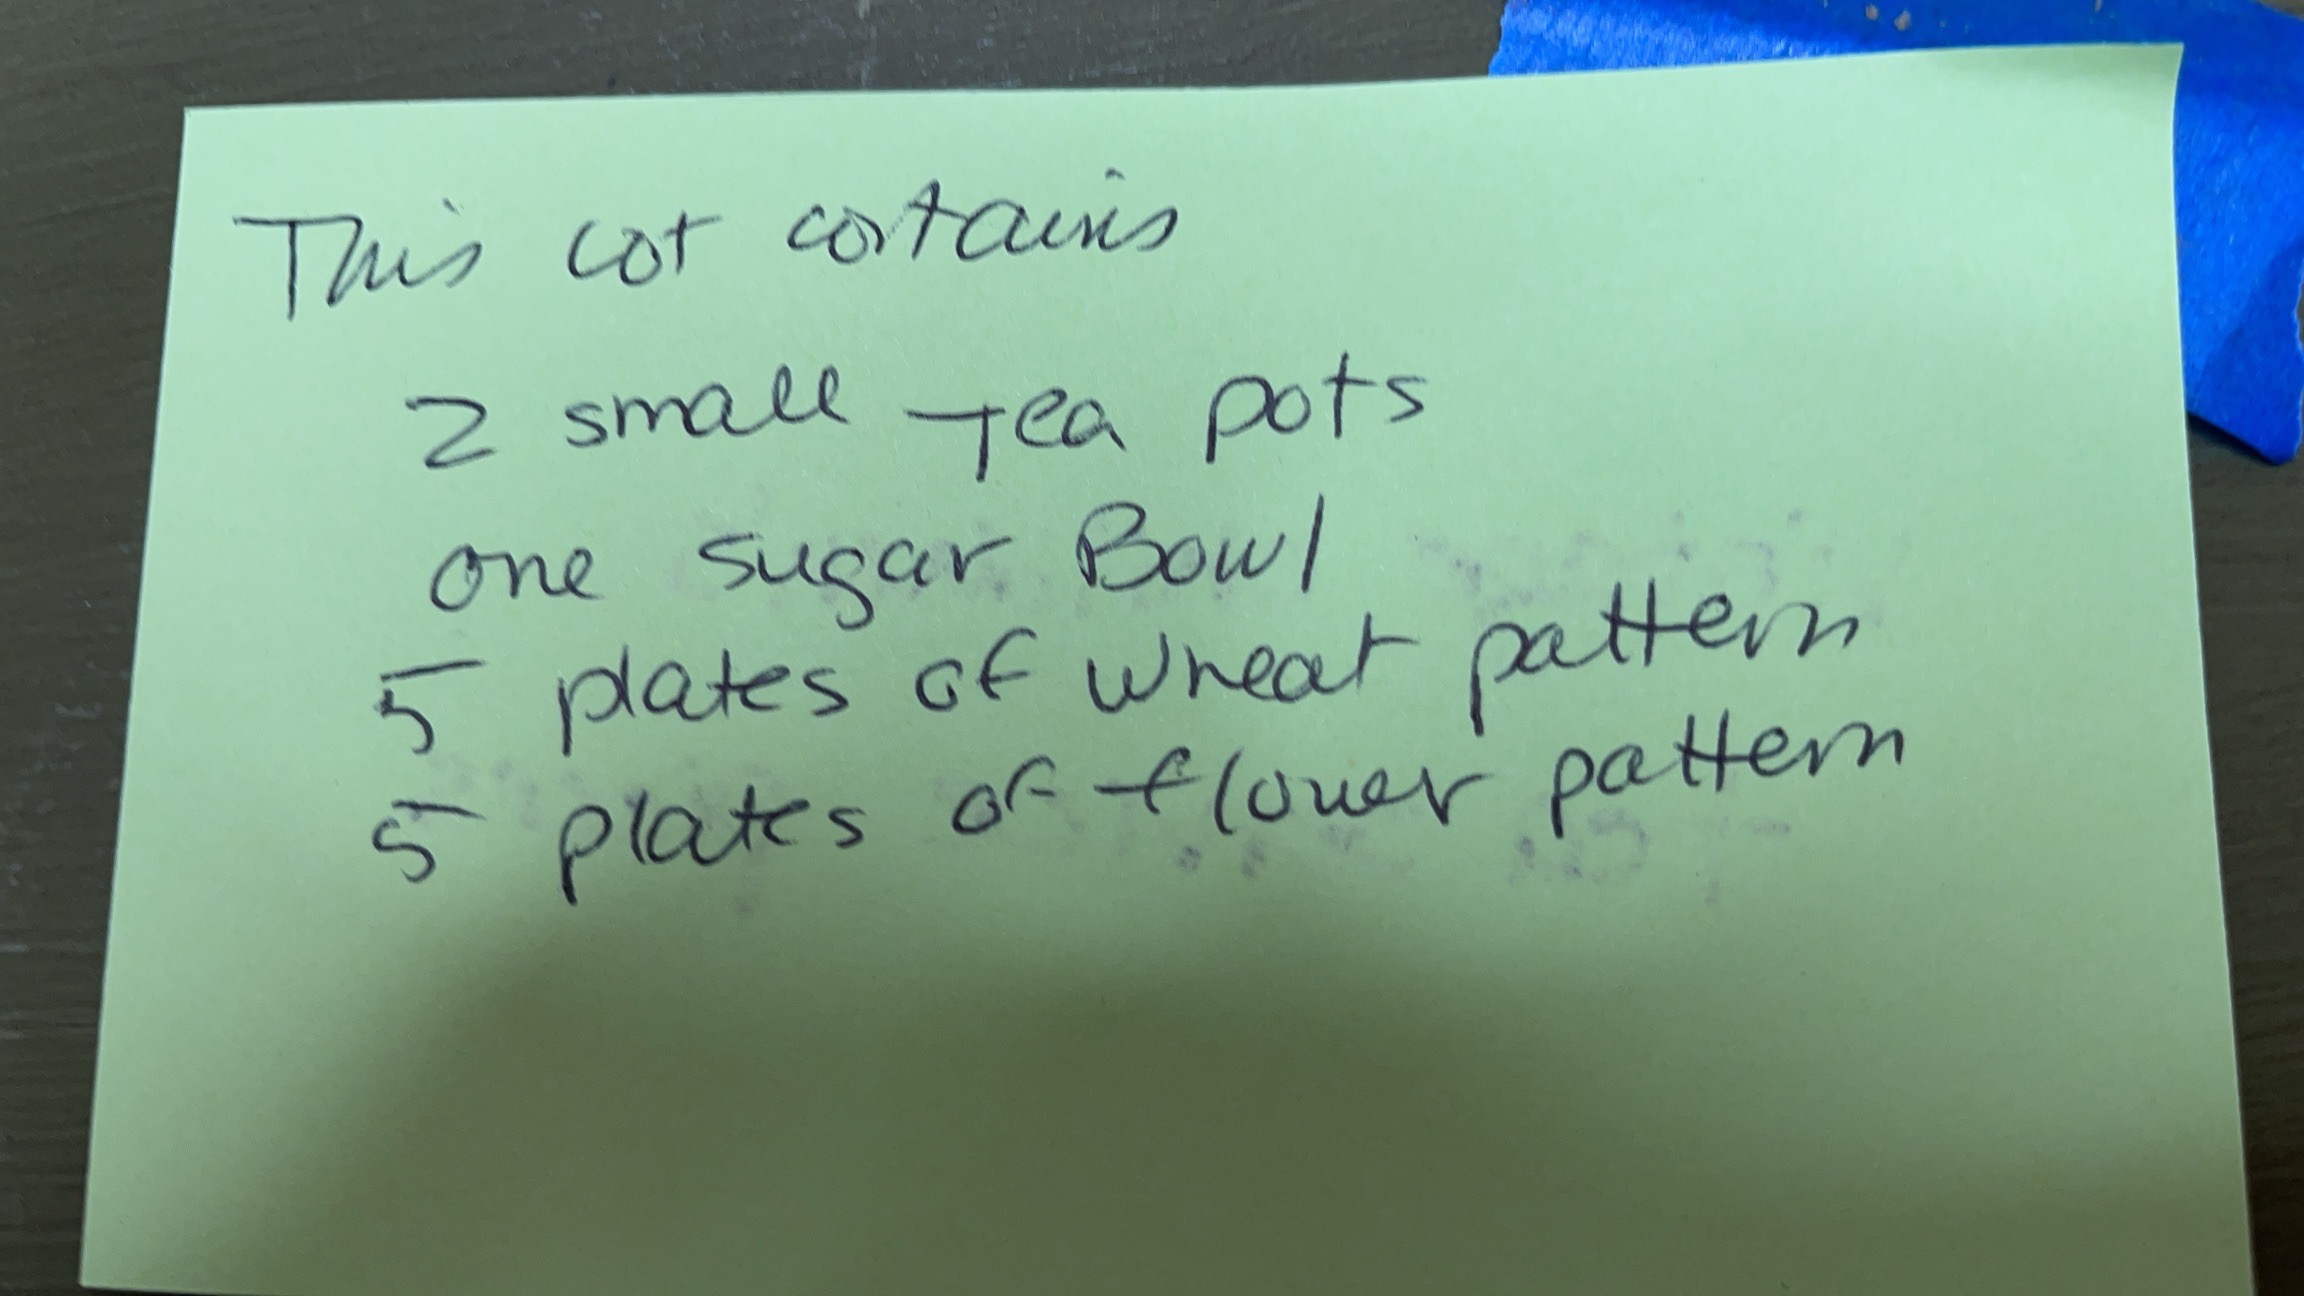 This lot contains
2 small Tea pots
one sugar Bowl
5 plates of wheat pattern
5 plates of flower pattern